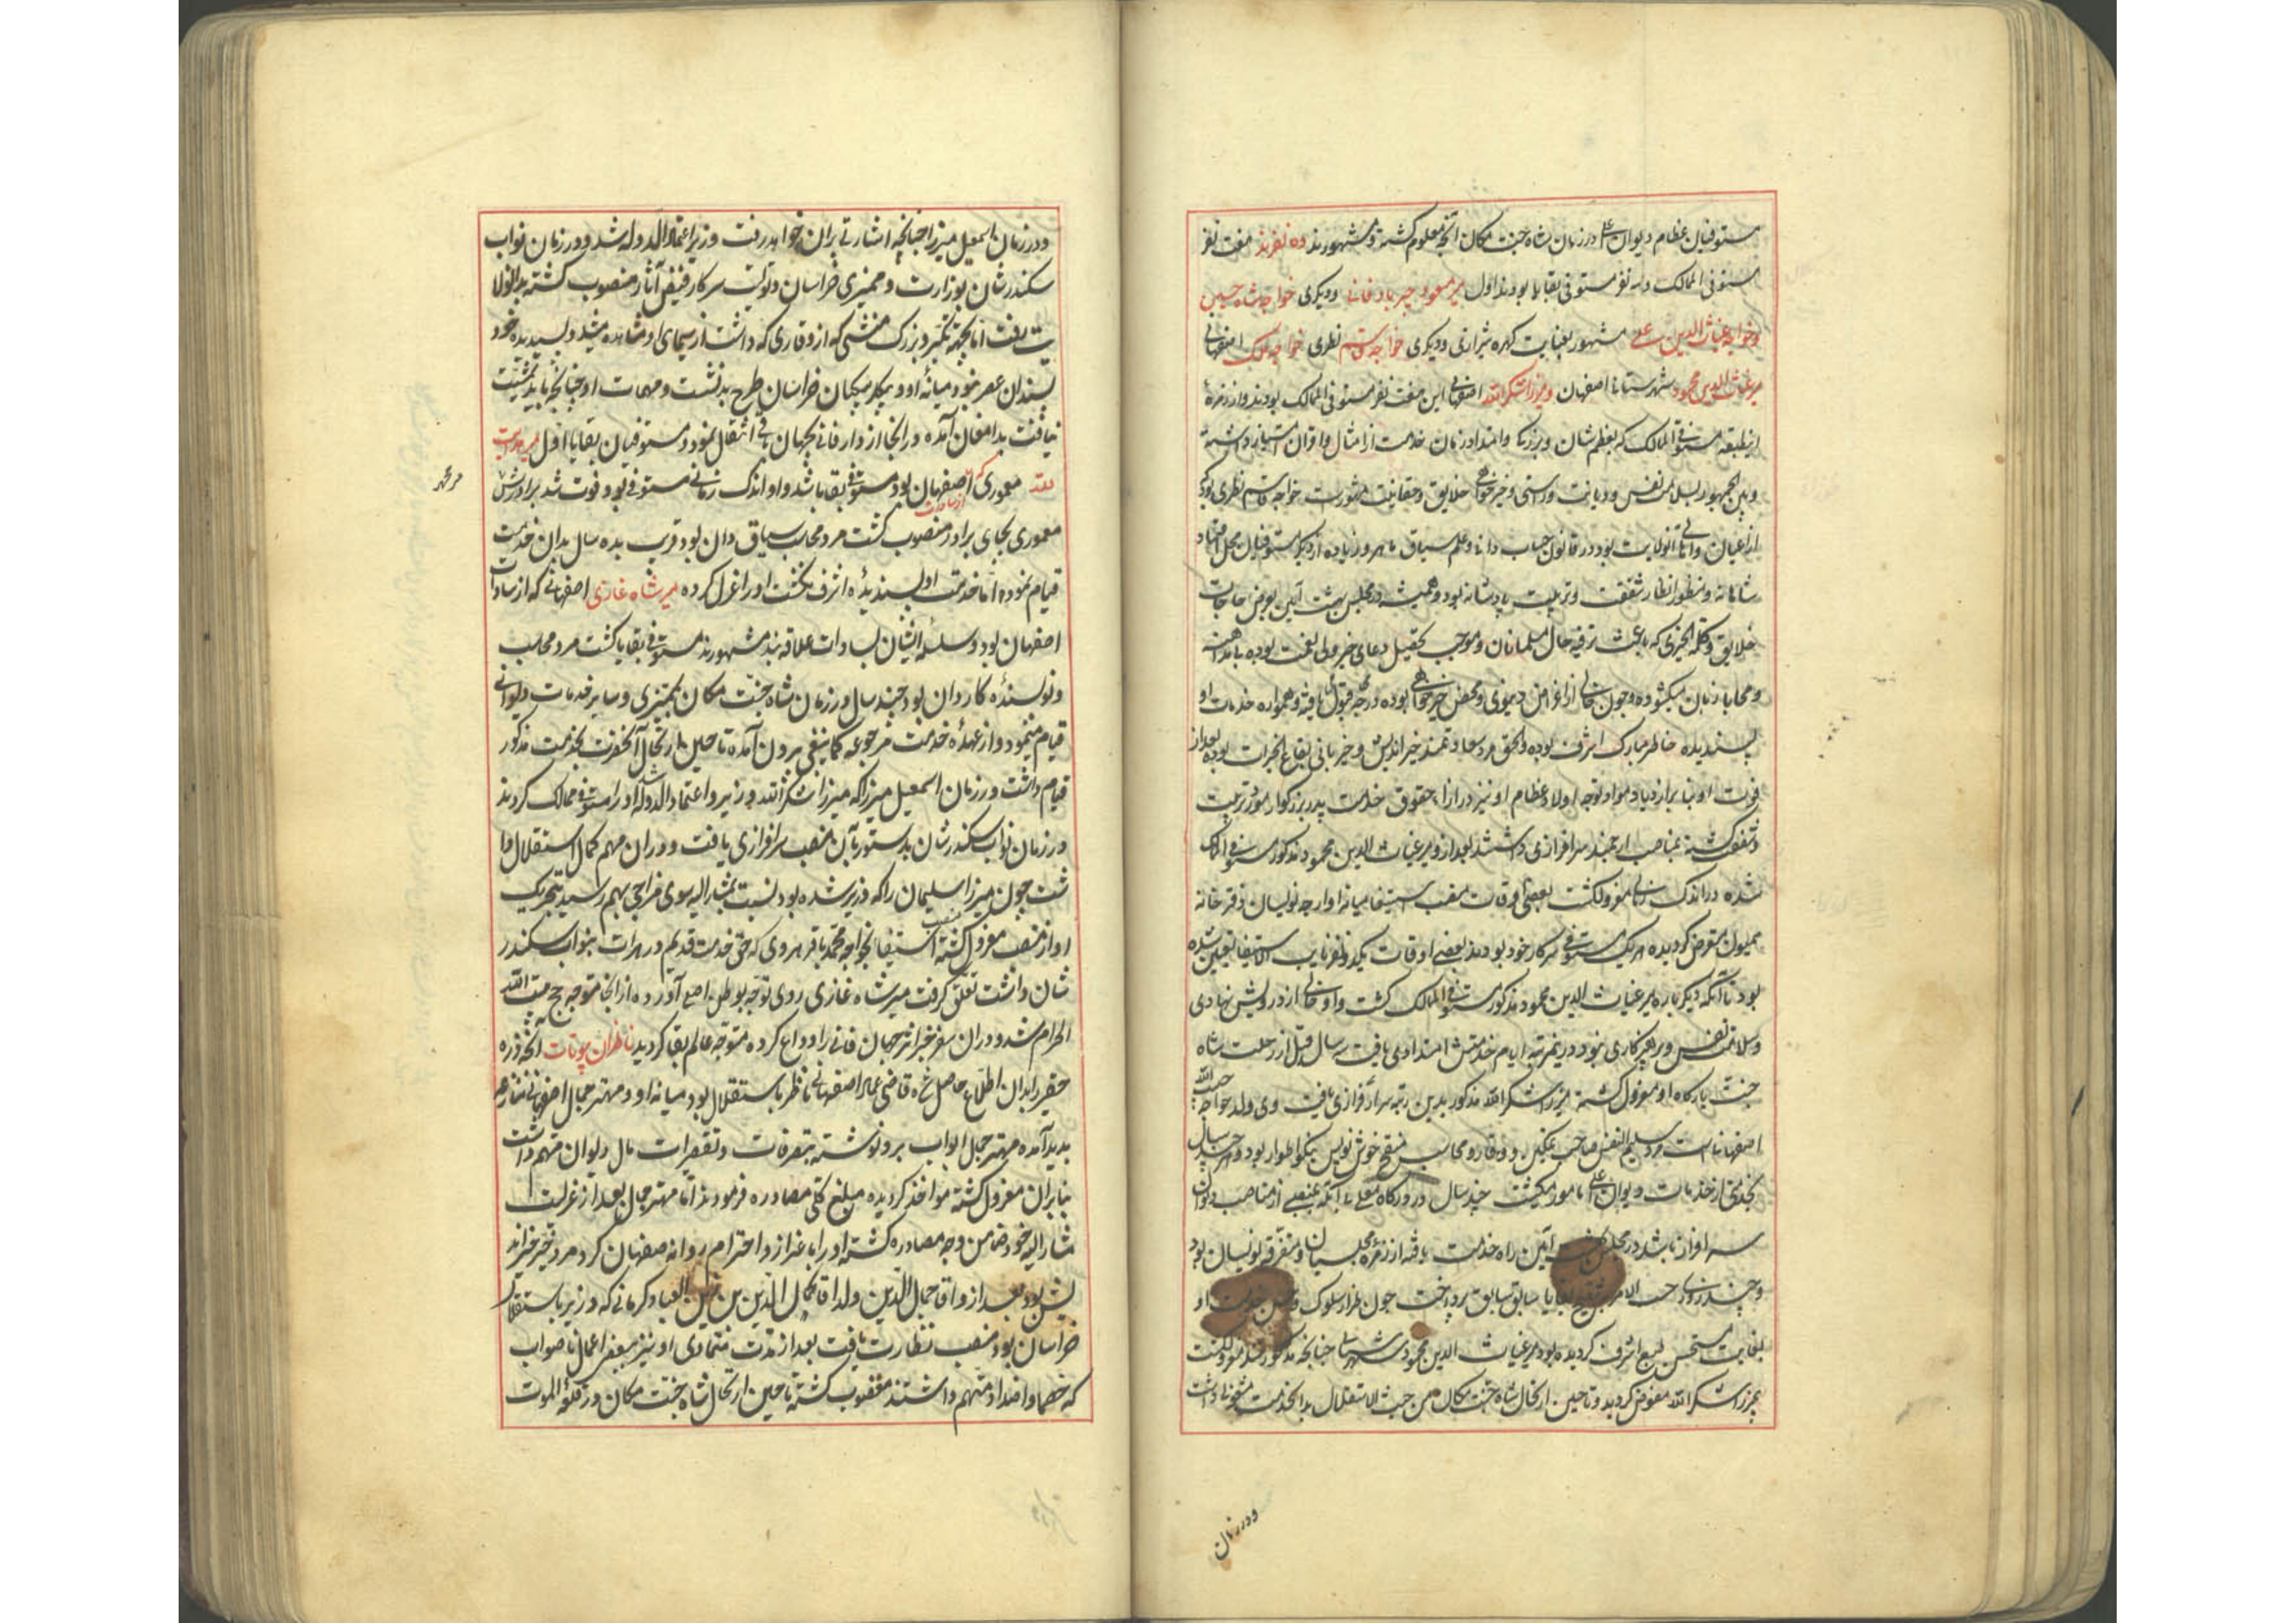 مستوفیان عظام دیوان اعلی در زمان شاه جنت مکان آنچه معلوم گشته و مشهورند ده نفرند هفت نفر
مستوفی الممالک و سه نفر مستوفی بقایا بودند اول میر مسعود جربادقانی و دیگری خواجه شاه حسین
و خواجه غیاث الدین علی مشهور بغیایت کهره شیرازی و دیگری خواجه قاسم نطری خواجه ملک اصفهانی
میر غیاث الدین محمود شهرستانی اصفهان و میرزا شکرالله اصفهانی این هفت نفر مستوفی الممالک بودند و از زمرهٔ
این طبقه مستوفی الممالک که بعظم شان و بزرگی و امتداد زمان خدمت از امثال و اقران امتیاز داشته
و بین الجمهور بسلامت نفس و دیانت و راستی و خیرخواهی خلایق و حقانیت مشهور است خواجه قاسم نطری بود که
از اعیان و اهالی آنولایت بود در قانون حساب دانا و علم سیاق ماهر و زیاده از دیگر مستوفیان محل اعتماد
شاهانه و منظور انظار شفقت و تربیت پادشانه بود و همیشه در مجلس بهشت آیین بعرض حاجات
خلایق و کلمة الخیری که باعث ترفیه حال مسلمانان و موجب تحصیل دعای خیر ولی نعمت بوده بامداهنه
و محابا زبان میگشوده و چون خالی از اغراض دنیوی و محض خیرخواهی بوده درجه قبول یافته و همواره خدمات او
پسندیده خاطر مبارک اشرف بوده و الحق مرد سعادتمند خیر اندیش و خیر بانی بقاع الخیرات بوده بعد از
فوت او بنا بر ازدیاد مواد توجه اولاد عظام او نیز در ازاء حقوق خدمت پدر بزرگوار مورد تربیت
و شفقت گشته بمناصب ارجمند سرافرازی داشتند بعد از و میر غیاث الدین محمود مذکور مستوفی الممالک
شده در اندک زمانی معزول گشت بعضی اوقات منصب استیفا میانه اوارجه نویسان دفترخانه
همیون مفوض گردیده هر یک مستوفی سرکار خود بودند بعضی اوقات یکدو نفر نایب الاستیفا تعیین شده
بود تا آنکه دیگر باره میر غیاث الدین محمود مذکور مستوفی الممالک گشت و او خالی از درویش نهادی
و سلامت نفس و پرهیزکاری نبود درینمرتبه ایام خدمتش امتدادی یافت سه سال قبل از رحلت شاه
جنت بارگاه او معزول گشته میرزا شکرالله مذکور بدین رتبه سرافرازی یافت وی ولد خواجه حبیب الله
اصفهانی است مرد سلیم النفس صاحب تمکین و وقار و محاسب منقح خوش نویس نیکو اطوار بود و هر سال
بخدمتی از خدمات دیوان اعلی مامور میگشت چند سال در درگاه معلی بی آنکه بمنصبی از مناصب دیوان
سرافراز باشد در مجلس بهشت آیین راه خدمت یافته از زمره مجلسیان و متفرقه نویسان بود
و چند روزی حسب الامر بتنقیح بقایا سابق سابق پرداخت چون طرز سلوک و حسن خدمت او
بغایت مستحسن طبع اشرف گردیده بود میر غیاث الدین محمود شهرستانی چنانچه مذکور شد معزول گشت
بمیرزا شکرالله مفوض گردید و تا حین ارتحال شاه جنت مکان من حیث الاستقلال بدانخدمت مشغولی داشت
و در زمان
و در زمان اسمعیل میرزا چنانچه اشارتی بران خواهد رفت وزیر اعتماد الدوله شد و در زمان نواب
سکندرشان بوزارت و ممیزی خراسان و تولیت سرکار فیض آثار منصوب گشته بدانولا
یت رفت اما بجهة تکبر و بزرگ منشی که از وقاری که داشت از سیمای او مشاهده میشد و پسندیده خود
پسندان عصر نبود میانه او و بیگلربیگیان خراسان طرح بد نشست و مهمات او چنانچه باید تمشیت
نیافت بدامغان آمده در انجا از دار فانی بجهان باقی انتقال نمود و مستوفیان بقایا اول میر هدایت
الله معموری که از سادات اصفهان بود مستوفی بقایا شد و او اندک زمانی مستوفی بود فوت شد برادرش
میر محمد
معموری بجای برادر منصوب گشت مرد محاسب سیاق دان بود قریب بده سال بدان خدمت
قیام نموده اما خدمت او پسندیده اشرف نگشت او را عزل کرده میر شاه غازی اصفهانی که از سادات
اصفهان بود و سلسله ایشان بسادات علاقه بند مشهورند مستوفی بقایا گشت مرد محاسب
و نویسنده کاردان بود چند سال در زمان شاه جنت مکان بممیزی و سایر خدمات دیوانی
قیام مینمود و از عهدهٔ خدمت مرجوعه کما ینبغی بیرون آمده تا حین ارتحال آنحضرت بخدمت مذکور
قیام داشت در زمان اسمعیل میرزا که میرزا شکرالله وزیر و اعتماد الدوله شد او را مستوفی ممالک کردند
در زمان نواب سکندرشان بدستور بآن منصب سرافرازی یافت و در ان مهم کمال استقلال دا
شت چون میرزا سلیمان را که وزیر شده بود نسبت بمشار الیه سوی مزاجی بهم رسید بتحریک
او از منصب معزول گشته منصب استیفا بخواجه محمد باقر هروی که حق خدمت قدیم در هرات بنواب سکندر
شان داشت تعلق گرفت میر شاه غازی روی توجه بوطن اصلی آورده از انجا متوجه حج بیت الله
الحرام شد و در ان سفر خیر اثر جهان فانی را وداع کرده متوجه عالم بقا گردید ناظران بیوتات آنچه ذره
حقیر را بدان اطلاع حاصل شده قاضی عماد اصفهانی ناظر باستقلال بود میانه او و مهتر جمال اصفهانی منازعه
پدید آمده مهتر جمال ابواب برو نوشته بتصرفات و تقصیرات مال دیوان متهم داشت
بنابران معزول گشته مواخذ گردیده مبلغ کلی مصادره فرمودند اما مهتر جمال بعد از عزلت
مشار الیه خود ضامن وجه مصادره گشته او را باعزاز و احترام روانه صفهان کرد مرد خیر خیراند
یش بود بعد از و آقا جمال الدین ولد آقا کمال الدین بن زین العباد کرمانی که وزیر باستقلال
خراسان بود منصب نظارت یافت بعد از مدت متمادی او نیز ببعضی اعمال ناصواب
که خصما و اضداد متهم داشتند مغضوب گشته تا حین ارتحال شاه جنت مکان در قلعه الموت